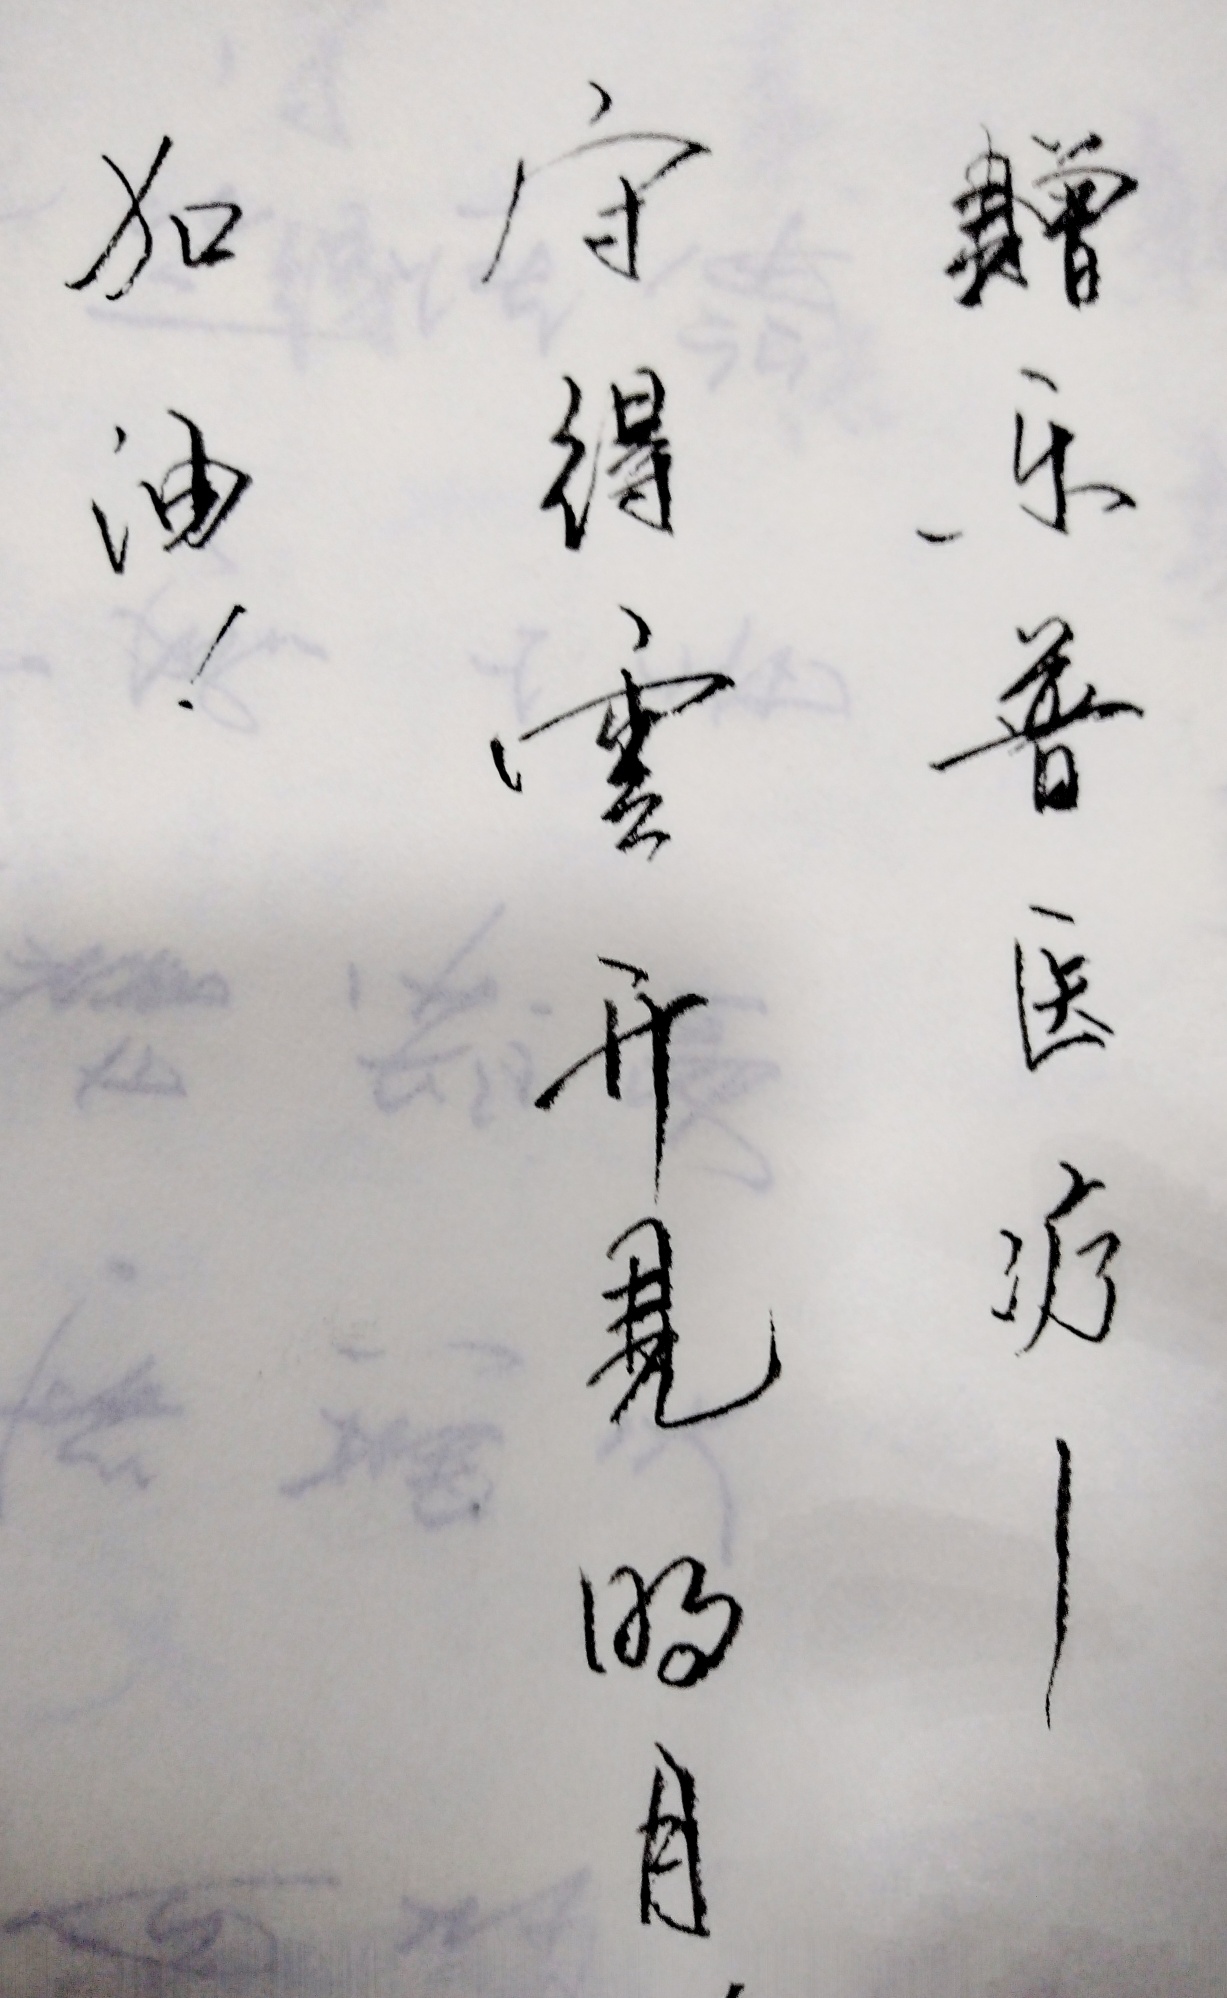 赠乐普医疗—
守得雲开見明月
加油!